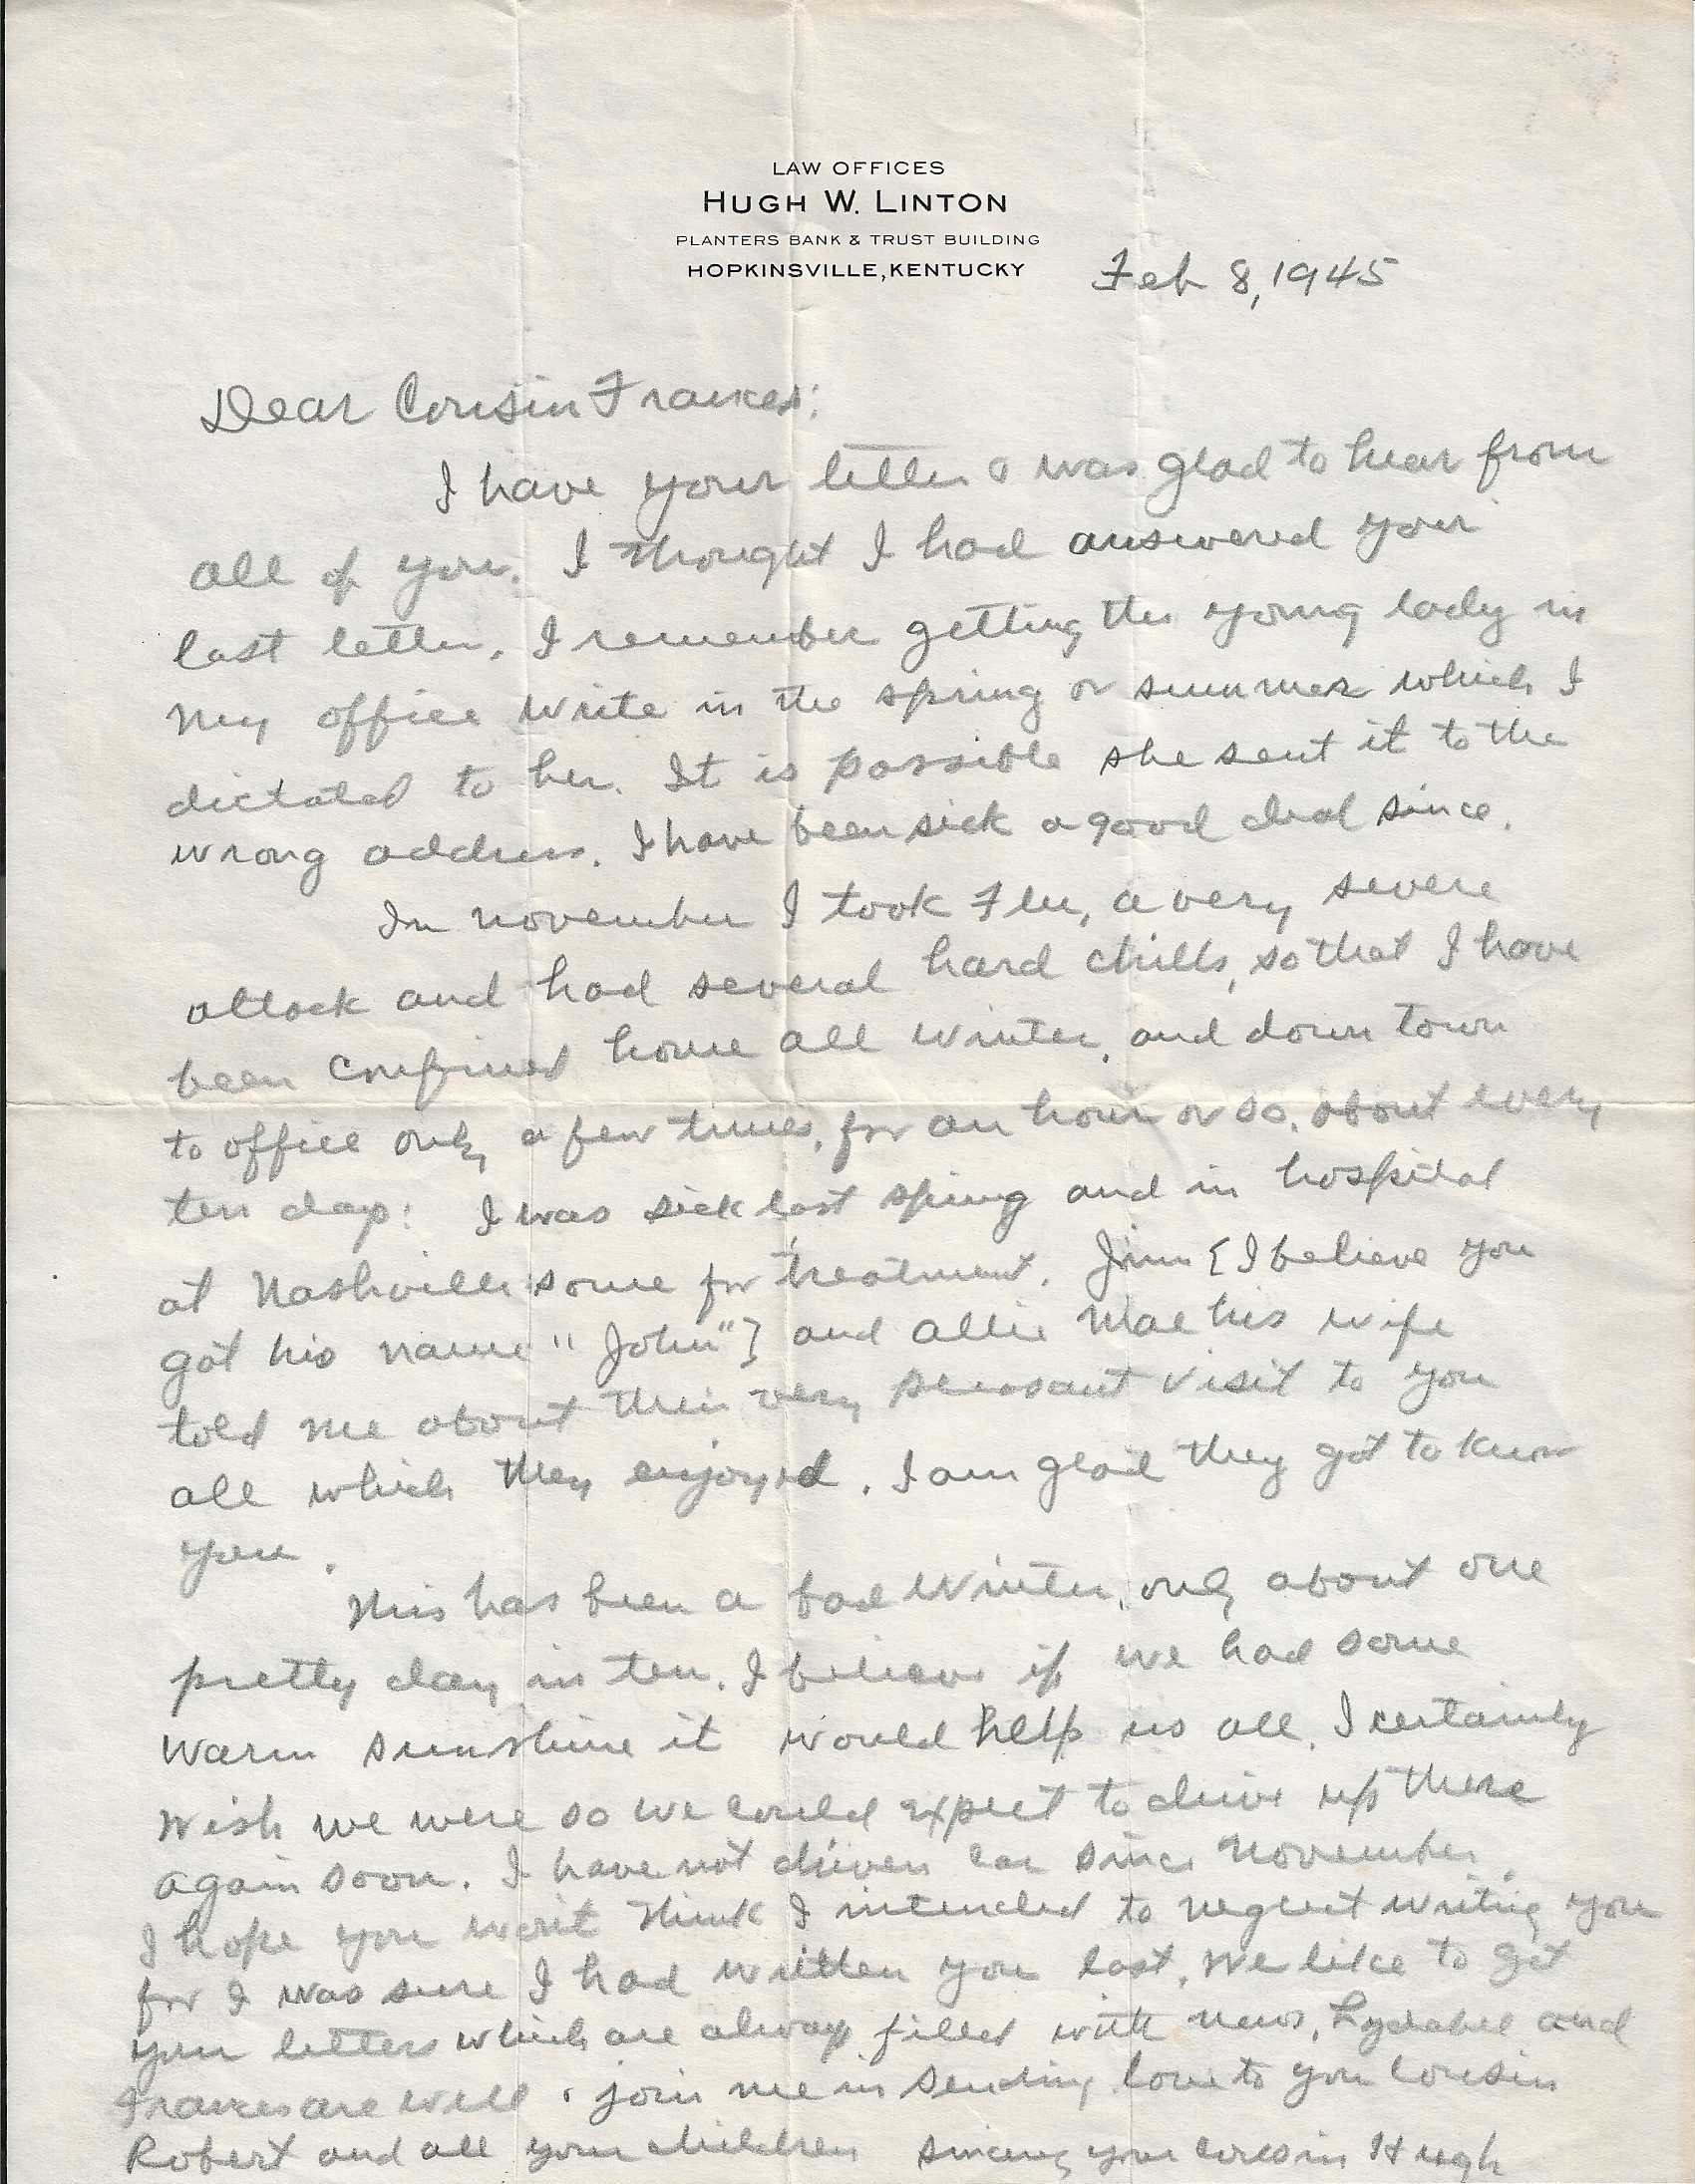 LAW OFFICES
HUGH W. LINTON
PLANTERS BANK & TRUST BUILDING
HOPKINSVILLE, KENTUCKY
Feb 8, 1945
Dear Cousin Frances:
I have your letter & was glad to hear from
all of you. I thought I had answered your
last letter. I remember getting the young lady in
my office write in the spring or summer which I
dictated to her. It is possible she sent it to the
wrong address. I have been sick a good deal since.
In November I took Flu, a very severe
attack and had several hard chills, so that I have
been confined home all winter, and down town
to office only a few times, for an hour or so, about every
ten days. I was sick last spring and in hospital
at Nashville some for treatment. Jim [I believe you
got his name "John"] and Allie Mae his wife
told me about their very pleasant visit to you
all which they enjoyed. I am glad they got to know
you.
This has been a bad winter, only about one
pretty day in ten. I believe if we had some
warm sunshine it would help us all. I certainly
wish we were so we could expect to drive up there
again soon. I have not driven car since November.
I hope you won't think I intended to neglect writing you
for I was sure I had written you last. We like to get
your letters which are always filled with news. Lydabel and
Frances are well & join me in sending love to you Cousin
Robert and all your children Sincerely your cousin Hugh